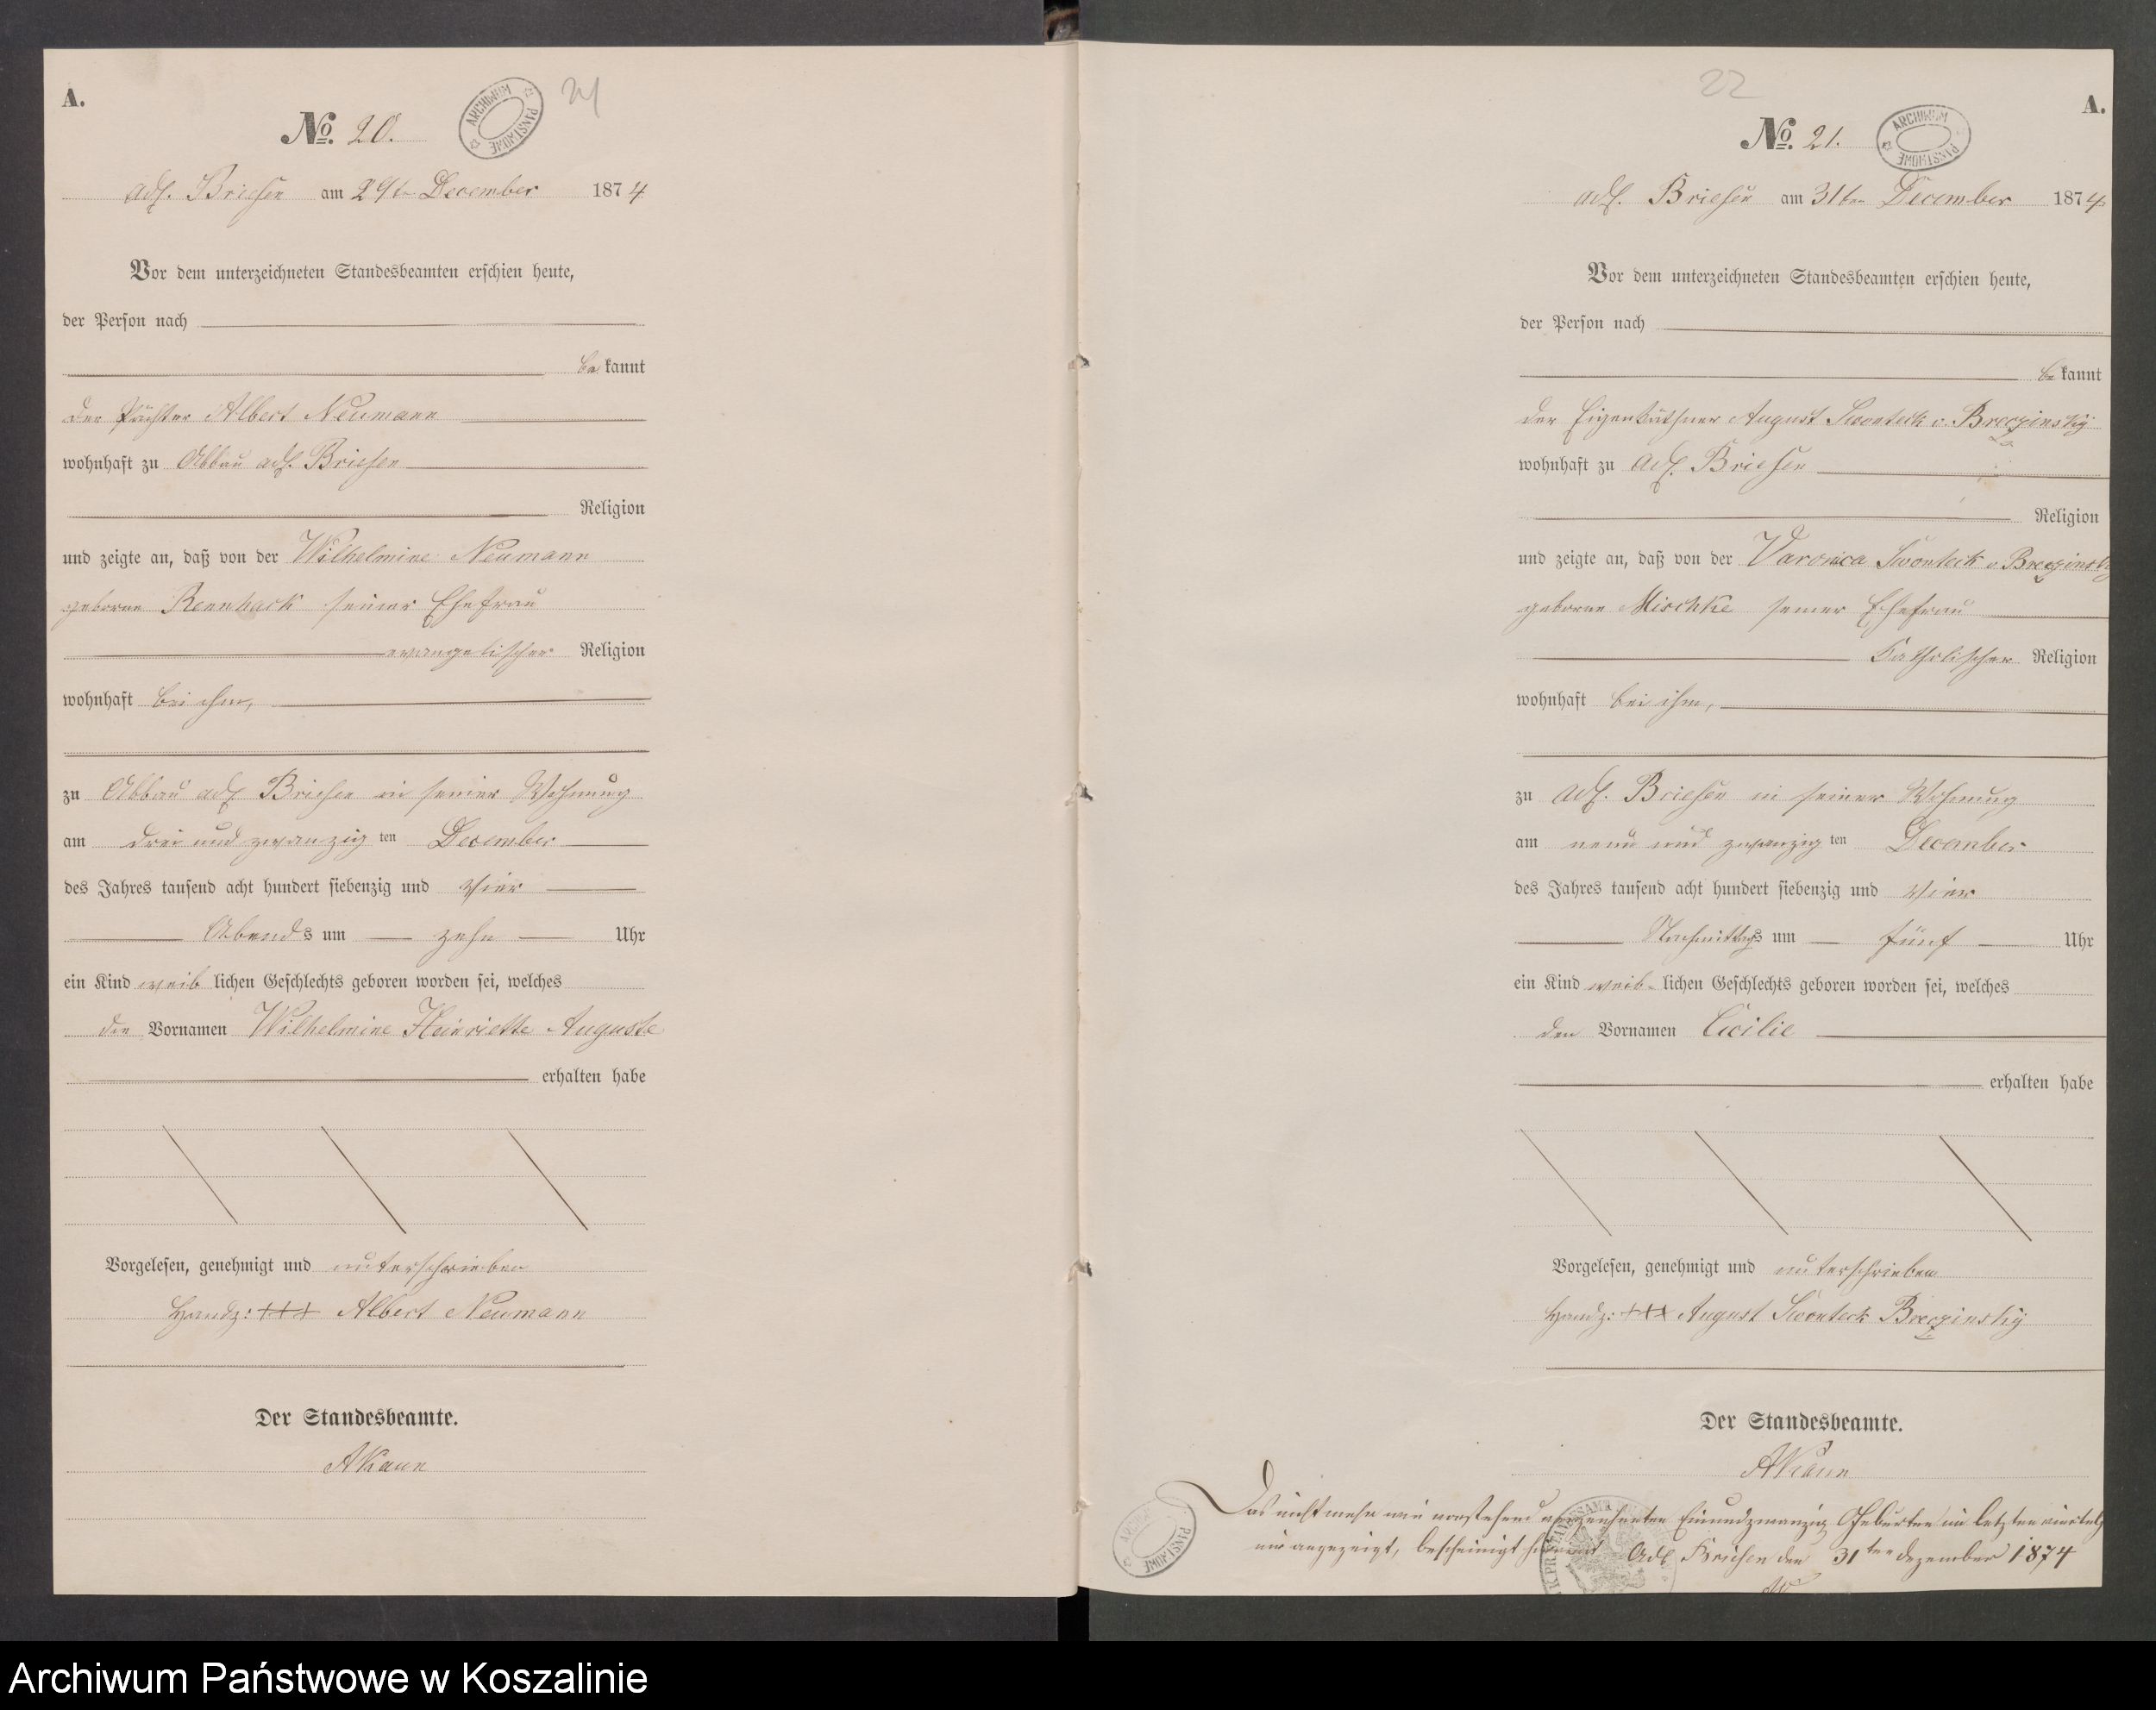 A.
No. 20.
ARCHIWUM PAŃSTWOWE
21
adl. Briesen am 29ten December 1874
Vor dem unterzeichneten Standesbeamten erschien heute,
der Person nach
be kannt
der Pächter Albert Neumann
wohnhaft zu Abbau adl. Briesen
Religion
und zeigte an, daß von der Wilhelmine Neumann
geborne Rennhack seiner Ehefrau
evangelischer Religion
wohnhaft bei ihm,
zu Abbau adl Briesen in seiner Wohnung
am drei und zwanzig ten December
des Jahres tausend acht hundert siebenzig und vier
Abends um zehn Uhr
ein Kind weib lichen Geschlechts geboren worden sei, welches
die Vornamen Wilhelmine Heinriette Auguste
erhalten habe
Vorgelesen, genehmigt und unterschrieben
Handz: +++ Albert Neumann
Der Standesbeamte.
AKaun
22
A.
No. 21.
ARCHIWUM PAŃSTWOWE
adl. Briesen am 31ten December 1874
Vor dem unterzeichneten Standesbeamten erschien heute,
der Person nach
be kannt
der Eigenkäthner August Swonteck v. Breczinsky
wohnhaft zu adl. Briesen
Religion
und zeigte an, daß von der Varonica Swonteck v Breczinsky
geborne Mischke seiner Ehefrau
katholischer Religion
wohnhaft bei ihm,
zu adl. Briesen in seiner Wohnung
am neun und zwanzig ten December
des Jahres tausend acht hundert siebenzig und vier
Nachmittags um fünf Uhr
ein Kind weib- lichen Geschlechts geboren worden sei, welches
den Vornamen Cicilie
erhalten habe
Vorgelesen, genehmigt und unterschrieben
Handz: +++ August Swonteck Breczinsky
Der Standesbeamte.
AKaun
Das nicht mehr wie vorstehend Einundzwanzig Geburten im letzten
mir angezeigt, bescheinigt hiermit Adl Briesen den 31ten Dezember 1874
ARCHIWUM PAŃSTWOWE
Archiwum Państwowe w Koszalinie